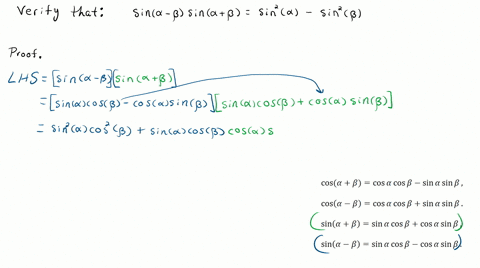 Verify that: sin(α-β) sin(α+β) = sin²(α) - sin²(β)
Proof.
LHS = [sin(α-β)][sin(α+β)]
= [sin(α)cos(β) - cos(α)sin(β)][sin(α)cos(β) + cos(α) sin(β)]
= sin²(α)cos²(β) + sin(α)cos(β) cos(α) s
cos(α + β) = cos α cos β − sin α sin β ,
cos(α − β) = cos α cos β + sin α sin β .
sin(α + β) = sin α cos β + cos α sin β
sin(α − β) = sin α cos β − cos α sin β